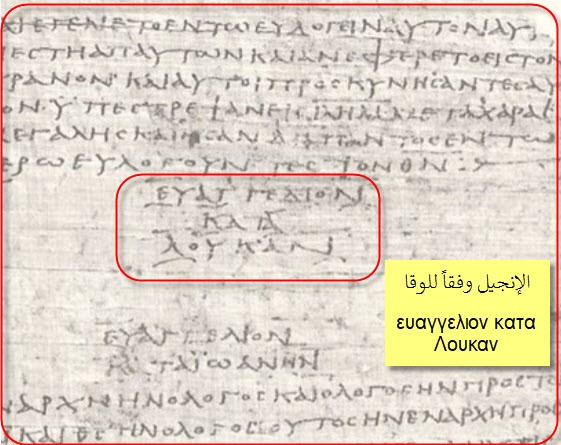 ΑΙ ΕΓΕΝΕΤΟ ΕΝ ΤΩ ΕΥΛΟΓΕΙΝ ΑΥΤΟΝ ΑΥ
ΙΕϹΤΗ ΑΠ ΑΥΤΩΝ ΚΑΙ ΑΝΕΦΕΡΕΤΟ ΕΙϹ ΤΟΝ
ΡΑΝΟΝ ΚΑΙ ΑΥΤΟΙ ΠΡΟϹΚΥΝΗϹΑΝΤΕϹ ΑΥ
ΟΝ ΥΠΕϹΤΡΕΨΑΝ ΕΙϹ ΜΕΤΑ ΧΑΡΑϹ
ΕΓΑΛΗϹ ΚΑΙ ΗϹΑΝ ΔΙΑ ΠΑΝΤΟϹ ΕΝ ΤΩ
ΕΡΩ ΕΥΛΟΓΟΥΝΤΕϹ ΤΟΝ ΘΝ
ΕΥΑΓΓΕΛΙΟΝ
ΚΑΤΑ
ΛΟΥΚΑΝ
الإنجيل وفقاً للوقا
ευαγγελιον κατα
Λουκαν
ΕΥΑΓΓΕΛΙΟΝ
ΚΑΤΑ ΙΩΑΝΗΝ
Ν ΑΡΧΗ ΗΝ Ο ΛΟΓΟϹ ΚΑΙ Ο ΛΟΓΟϹ ΗΝ ΠΡΟϹ ΤΟ
ΚΑΙ ΘϹ ΗΝ Ο ΛΟΓΟϹ ΟΥΤΟϹ ΗΝ ΕΝ ΑΡΧΗ ΠΡΟ